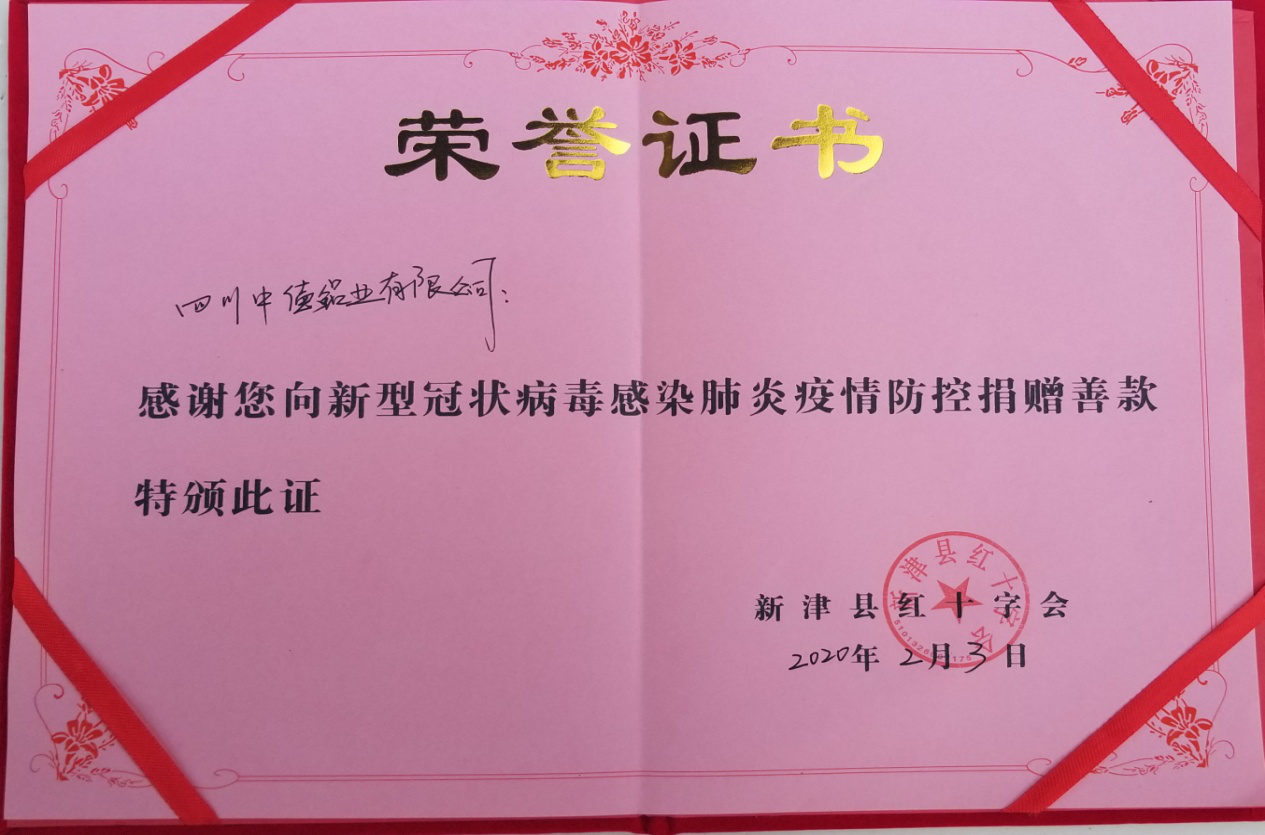 荣誉证书
四川中德铝业有限公司：
感谢您向新型冠状病毒感染肺炎疫情防控捐赠善款
特颁此证
新津县红十字会
新津县红十字会
2020年2月3日